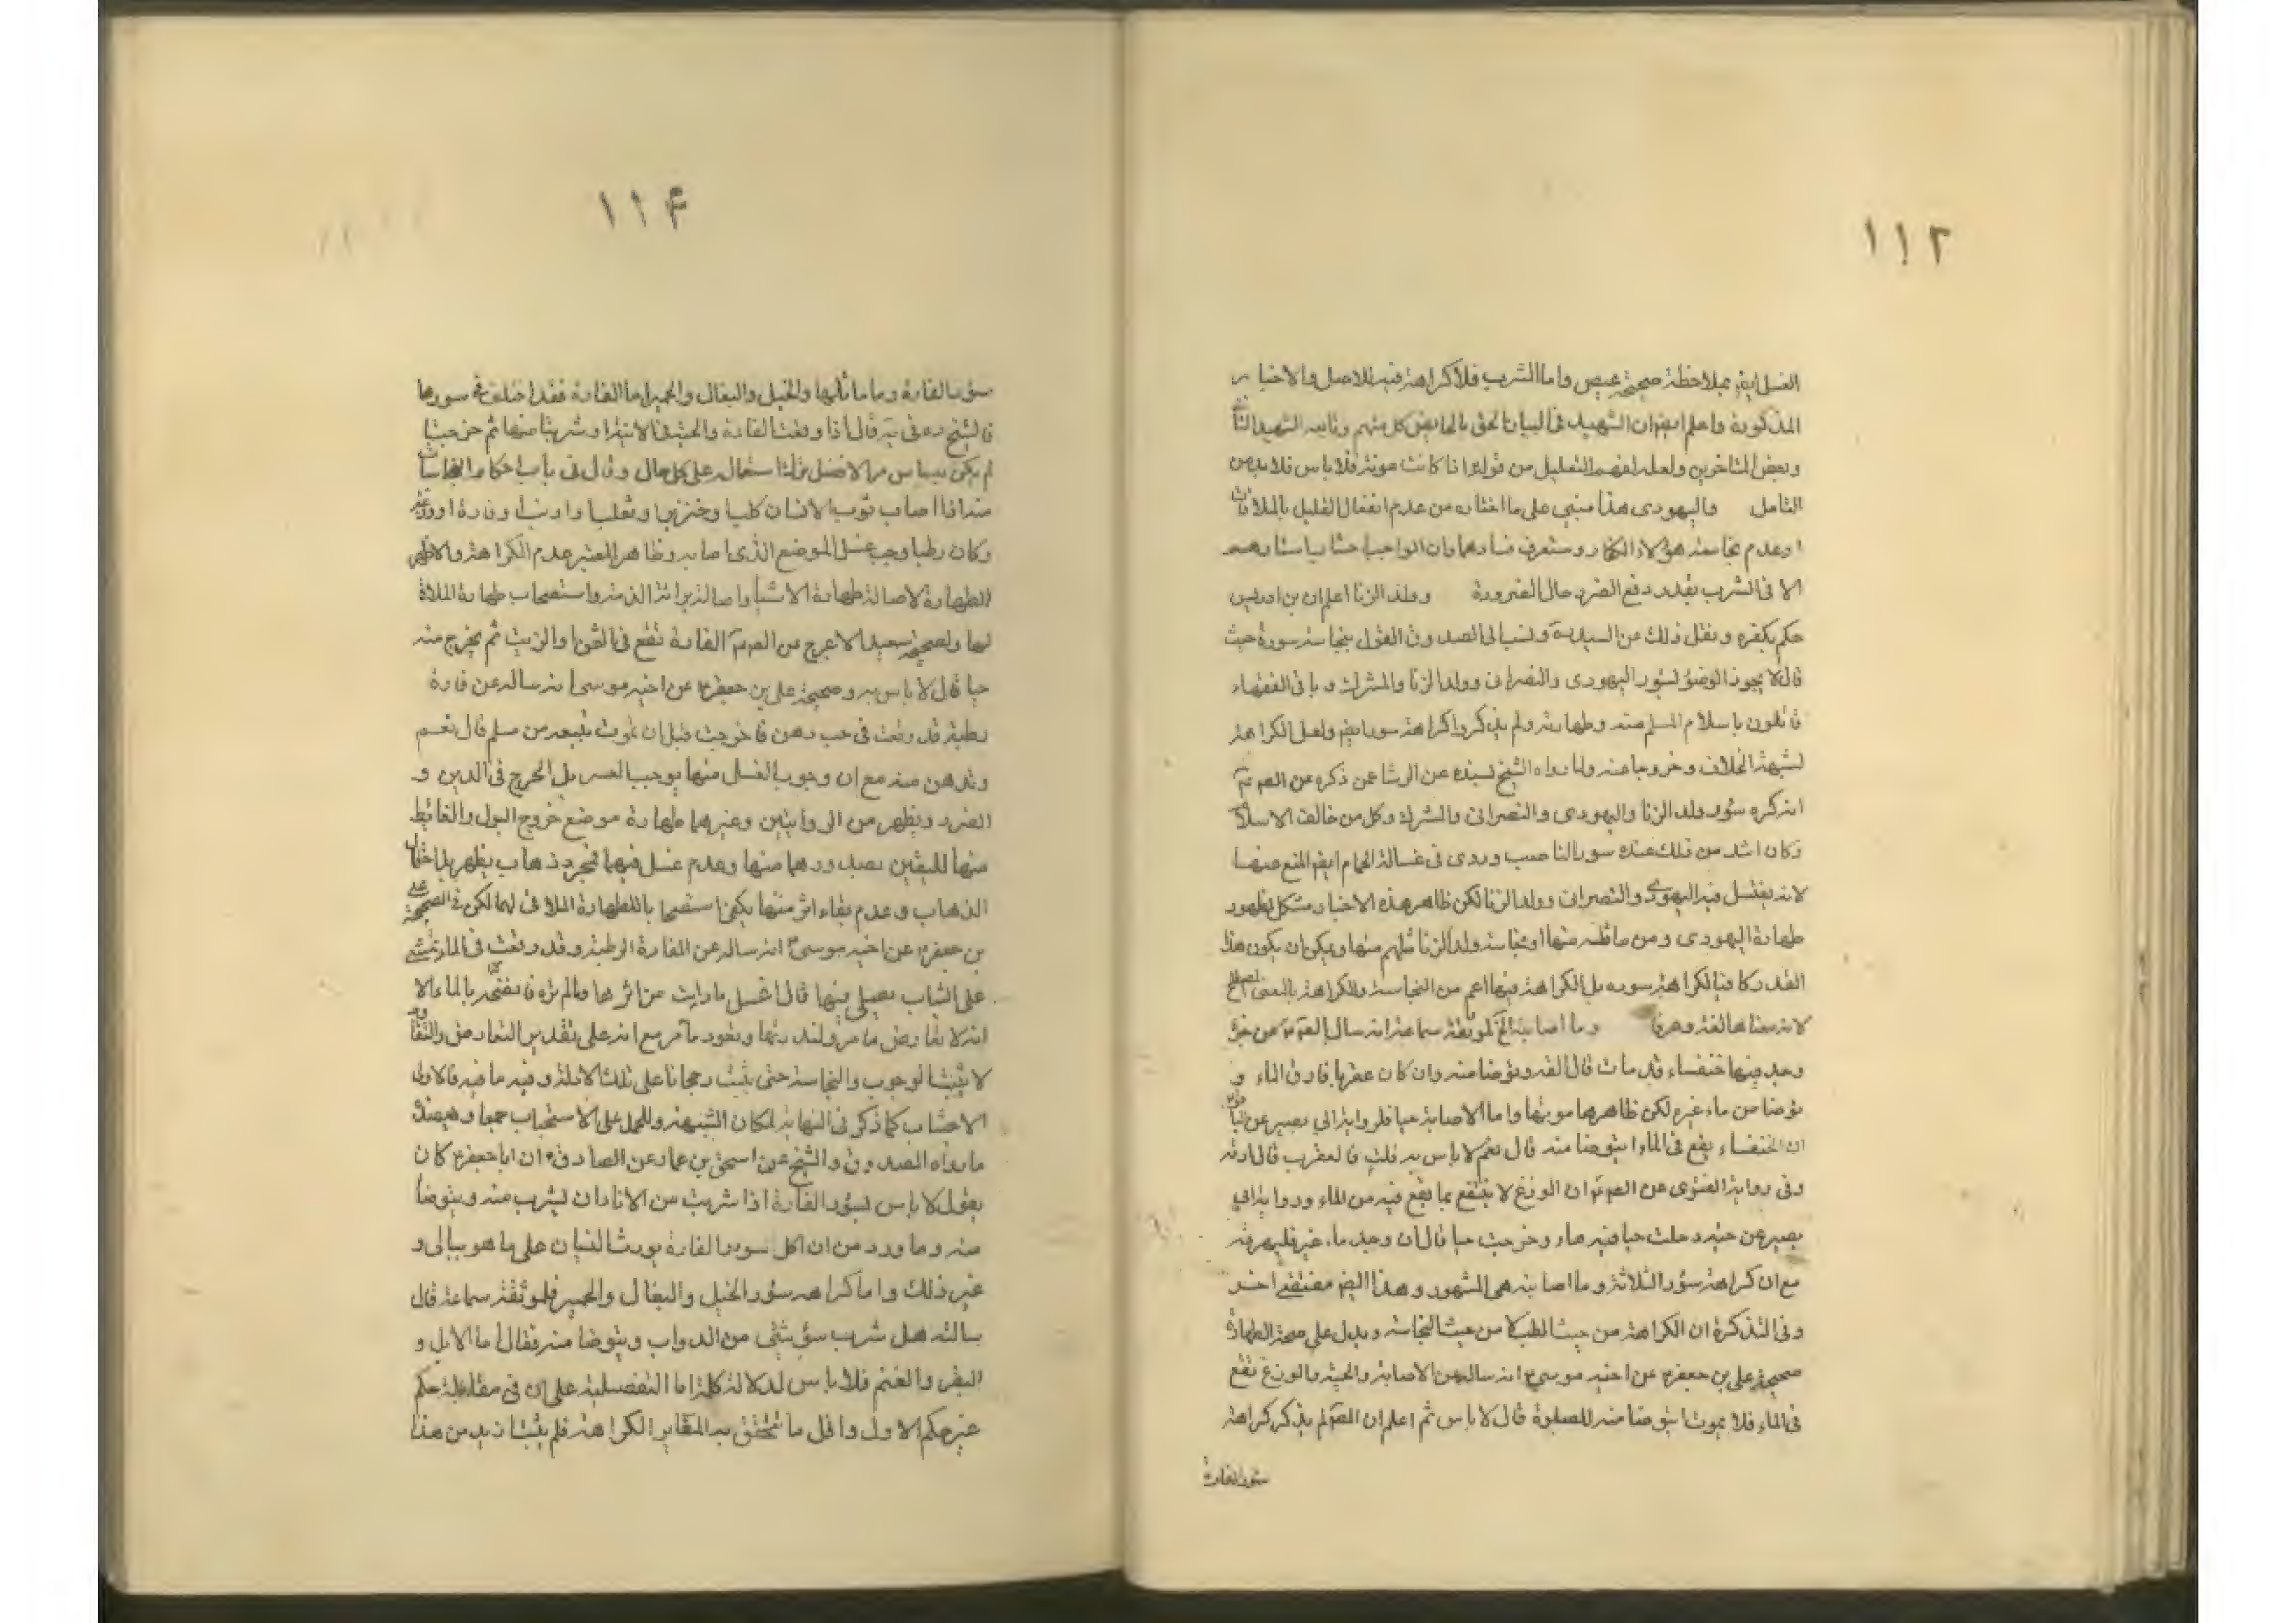 ١١٢
الغسل ايضا بملاحظة صحيحة عيص واما الشرب فلا كراهة فيه للاصل والاخبار
المذكورة واعلم ايضا ان الشهيد في البيان الحق بالحايض كل متهم وتابعه الشهيد الثاني
وبعض المتاخرين ولعله لفهم التعليل من قوله اذا كانت مونة فلا باس فلا بد من
التامل واليهودي هذا مبني على ما اختاره من عدم انفعال القليل بالملاقات
او عدم نجاسة هؤلاء الكفار وستعرف فسادهما وان الواجب اجتناب اسئارهم
الا في الشرب بقدر دفع الضرر حال الضرورة وولد الزنا اعلم ان بن ادريس
حكم بكفره ونقل ذلك عن السيد ونسب الى الصدوق القول بنجاسة سوره حيث
قال لا يجوز الوضوء بسؤر اليهودي والنصراني وولد الزنا والمشرك وباقي الفقهاء
قائلون باسلام المسلم منه وطهارته ولم يذكروا كراهة سوره ايضا ولعل الكراهة
لشبهة الخلاف وخروجا عنه ولما رواه الشيخ بسنده عن الوشا عن ذكره عن الصم
انه كره سؤر ولد الزنا واليهودي والنصراني والمشرك وكل من خالف الاسلام
وكان اشد من ذلك عنده سور الناصب وروى في غسالة الحمام ايضا المنع عنها
لانه يغتسل فيه اليهودي والنصراني وولد الزنا لكن ظاهر هذه الاخبار مشكل لظهور
طهارة اليهودي ومن ماثله منها او نجاسة ولد الزنا مثلهم منها ويمكن ان يكون هذا
القدر كافيا لكراهة سوره بل الكراهة فيها اعم من النجاسة والكراهة بالمعنى المصطلح
لانه معناها لغة وعرفا وما اصابته الخ لموثقة سماعة انه سال الصم عن جرة
وجد فيها خنفساء قد مات قال القه وتوضا منه وان كان عقربا فارق الماء و
توضا من ماء غيره لكن ظاهرها موتها واما الاصابة حيا فلرواية ابي بصير عن الباقر
ان الخنفساء يقع في الماء ايتوضا منه قال نعم لا باس به قلت فالعقرب قال ارقه
وفي رواية الغنوي عن الصم ان الوزغ لا ينتفع بما يقع فيه من الماء ورواية ابي
بصير عن حية دخلت حبا فيه ماء وخرجت حيا قال ان وجد ماء غيره فليهرقه
مع ان كراهة سؤر الثلاثة وما اصابته هي المشهور وهذا ايضا مقتضى اخر
وفي التذكرة ان الكراهة من حيث الطب لا من حيث النجاسة ويدل على صحة الطهارة
صحيحة علي بن جعفر عن اخيه موسى انه ساله عن الاصابة والحية والوزغ تقع
في الماء فلا يموت ايتوضا منه للصلوة قال لا باس ثم اعلم ان الصم لم يذكر كراهة
سئور الفارة
١١٤
سؤر الفارة وما ماثلها والخيل والبغال والحمير اما الفارة فقد اختلف في سورها
فالشيخ ره في يه قال اذا وقعت الفارة والحية في الانية او شربتا منها ثم خرجتا حيا
لم يكن به باس والافضل ترك استعماله على كل حال وقال في باب احكام النجاسات
منه اذا اصاب ثوب الانسان كلب او خنزير او ثعلب او ارنب او فارة او وزغة
وكان رطبا وجب غسل الموضع الذي اصابه وظاهر المعتبر عدم الكراهة والاظهر
الطهارة لاصالة طهارة الاشياء واصالة براءة الذمة واستصحاب طهارة الملاقا
لها ولصحيحة سعيد الاعرج من الصم الفارة تقع في السمن والزيت ثم يخرج منه
حيا قال لا باس به وصحيحة علي بن جعفر عن اخيه موسى انه ساله عن فارة
رطبة قد وقعت في حب دهن فاخرجت قبل ان تموت نبيعه من مسلم قال نعم
وتدهن منه مع ان وجوب الغسل منها يوجب العسر بل الحرج في الدين و
الضرر ويظهر من الروايتين وغيرهما طهارة موضع خروج البول والغائط
منها لليقين بصدورهما منها وعدم غسل فيها فمجرد ذهاب يظهر بل احتمال
الذهاب وعدم بقاء اثر منها يكفي استصحابا للطهارة الملاقي لها لكن في الصحيحة علي
بن جعفر عن اخيه موسى انه ساله عن الفارة الرطبة وقد وقعت في الماء تمشي
على الثياب يصلي فيها قال اغسل ما رايت من اثرها وما لم تره فانضحه بالماء الا
انه لا تعارض ما مر ولندرتها وتعود ما مر مع انه على تقدير التعارض والتقاوم
لا يثبت الوجوب والنجاسة حتى يثبت رجحانا على تلك الادلة وفيه ما فيه فالاولى
الاجتناب كما ذكر في النهاية لمكان الشبهة وللحمل على الاستحباب جمعا وبعضده
ما رواه الصدوق والشيخ عن اسحق بن عمار عن الصادق ان ابا جعفر كان
يقول لا باس بسؤر الفارة اذا شربت من الاناء ان يشرب منه ويتوضا
منه وما ورد من ان اكل سور الفارة يورث النسيان على ما هو ببالي و
غير ذلك واما كراهة سؤر الخيل والبغال والحمير فلموثقة سماعة قال
سالته هل شرب سؤر شئ من الدواب ويتوضا منه فقال اما الابل و
البقر والغنم فلا باس لدلالة كلمة اما التفصيلية على ان في مقابلة حكم
غير حكم الاول واقل ما يتحقق به المغاير الكراهة فلم يثبت ازيد من هذا